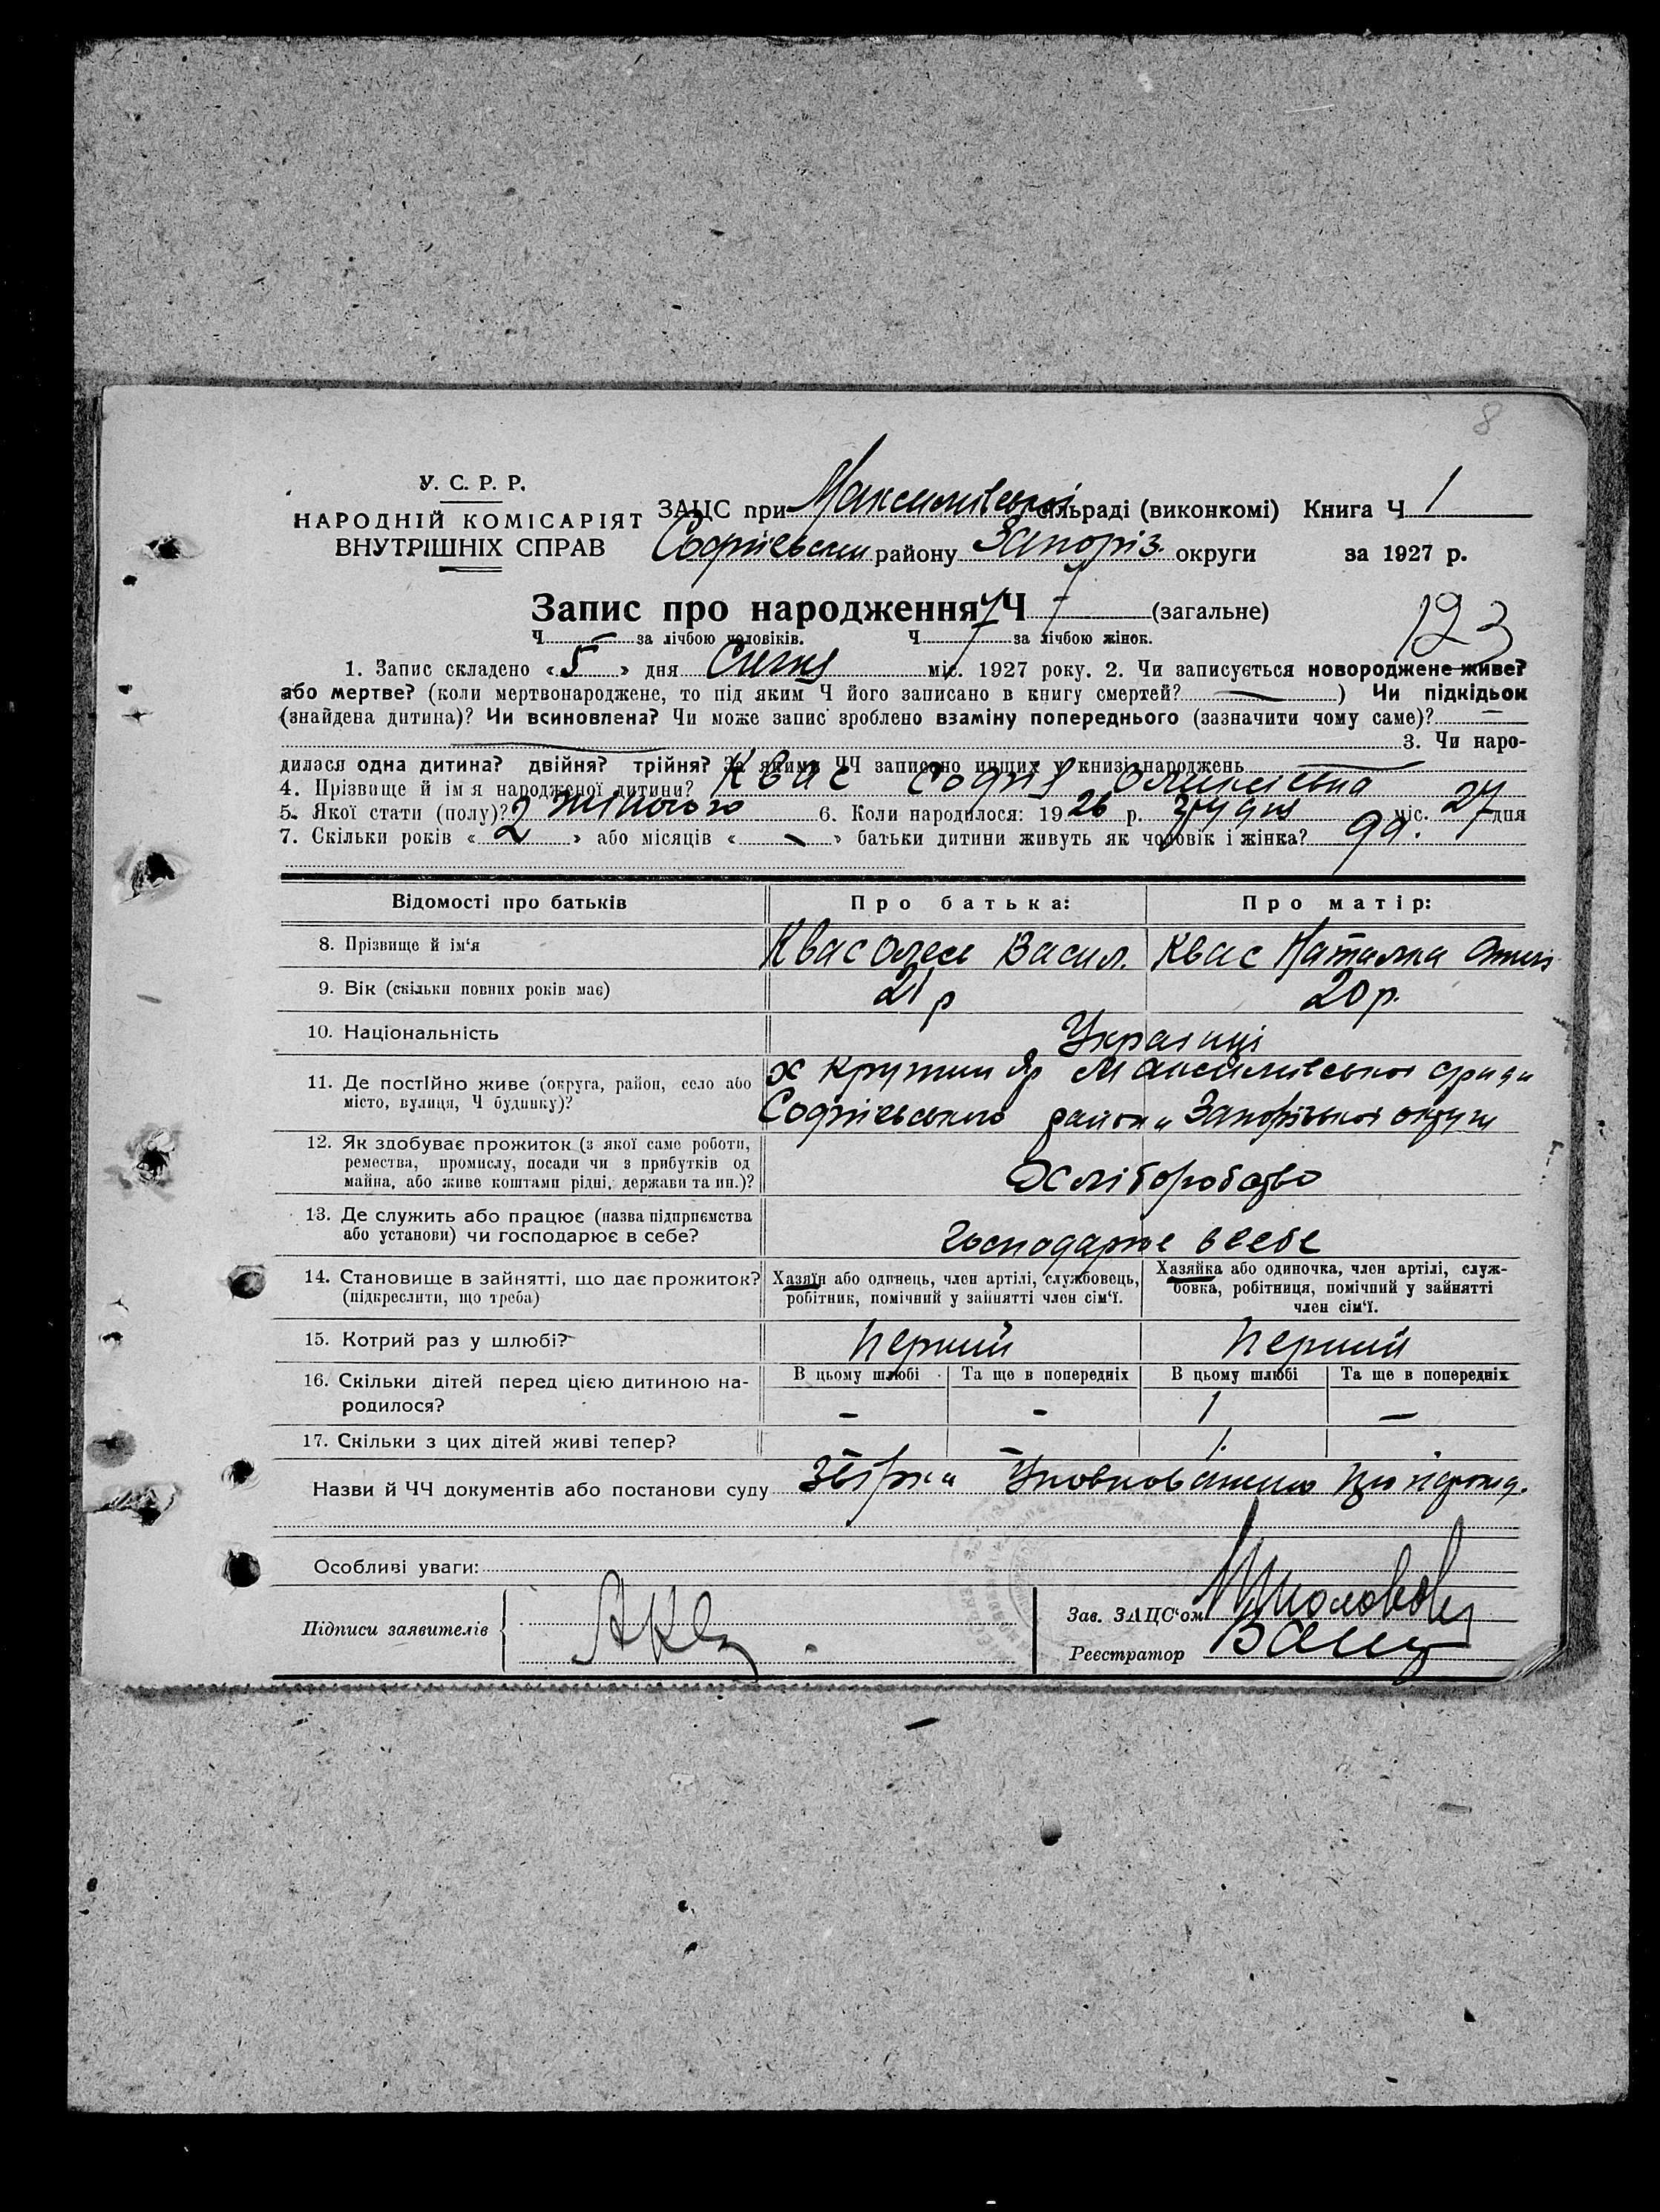 8
У. С. Р. Р.
НАРОДНІЙ КОМІСАРІЯТ
ВНУТРІШНІХ СПРАВ
ЗАЦС при Максимивської сільраді (виконкомі) Книга Ч 1
Софіевськи району Запоріз. округи за 1927 р.
Запис про народження Ч 7 (загальне)
123
Ч — за лічбою чоловіків. Ч 7 за лічбою жінок.
1. Запис складено « 5 » дня Січня міс. 1927 року. 2. Чи записується новороджене живе?
або мертве? (коли мертвонароджене, то під яким Ч його записано в книгу смертей? — ) Чи підкідьок
(знайдена дитина)? Чи всиновлена? Чи може запис зроблено взаміну попереднього (зазначити чому саме)? —
3. Чи наро-
дилася одна дитина? двійня? трійня? За якими ЧЧ записано инших у книзі народжень —
4. Прізвище й ім'я народженої дитини? Квас Софія
5. Якої стати (полу)? жіночого 6. Коли народилося: 1926 р. грудня міс. 27 дня
7. Скільки років « 2 » або місяців « — » батьки дитини живуть як чоловік і жінка?
Відомості про батьків Про батька: Про матір:
8. Прізвище й ім'я Квас Олесь Васил. Квас Наталка
9. Вік (скільки повних років має) 21 р 20 р.
10. Національність Українці
11. Де постійно живе (округа, район, село або х Крутий Яр Максимивської сради
місто, вулиця, Ч будинку)? Софіевського району Запорізької округи
12. Як здобуває прожиток (з якої саме роботи,
ремества, промислу, посади чи з прибутків од
майна, або живе коштами рідні, держави та ин.)? Хліборобство
13. Де служить або працює (назва підприємства
або установи) чи господарює в себе? господарює в себе
14. Становище в зайнятті, що дає прожиток?
(підкреслити, що треба)
Хазяїн або одинець, член артілі, службовець,
робітник, помічний у зайнятті член сім'ї.
Хазяйка або одиночка, член артілі, служ-
бовка, робітниця, помічний у зайнятті
член сім'ї.
15. Котрий раз у шлюбі? перший перший
16. Скільки дітей перед цією дитиною на-
родилося?
В цьому шлюбі Та ще в попередніх В цьому шлюбі Та ще в попередніх
— — 1 —
17. Скільки з цих дітей живі тепер? 1.
Назви й ЧЧ документів або постанови суду
Особливі уваги:
Підписи заявителів
Зав. ЗАЦС'ом
Реєстратор